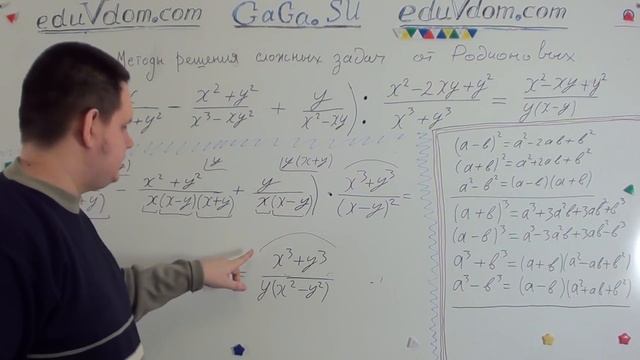 eduVdom.com GaGa.SU eduVdom.com
Методы решения сложных задач от Родионовых
+y² − (x²+y²)/(x³−xy²) + y/(x²−xy)) : (x²−2xy+y²)/(x³+y³) = (x²−xy+y²)/(y(x−y))
y y(x+y)
− (x²+y²)/(x(x−y)(x+y)) + y/(x(x−y))) · (x³+y³)/(x−y)² =
= (x³+y³)/(y(x²−y²))
(a−b)²=a²−2ab+b²
(a+b)²=a²+2ab+b²
a²−b²=(a−b)(a+b)
(a+b)³=a³+3a²b+3ab²+b³
(a−b)³=a³−3a²b+3ab²−b³
a³+b³=(a+b)(a²−ab+b²)
a³−b³=(a−b)(a²+ab+b²)